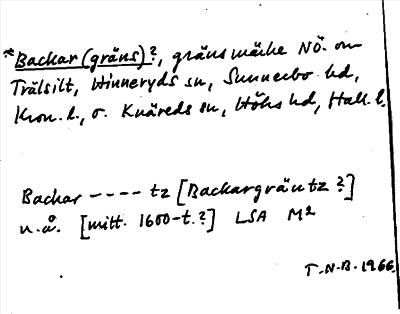 *Backar (gräns)?, gränsmärke NÖ. om
Trälsilt, Hinneryds sn, Sunnerbo hd,
Kron. l., o. Knäreds sn, Höks hd, Hall. l.
Backar ---- tz [Backargräntz ?]
u.å. [mitt. 1600-t.?] LSA M²
T.N.B. 1966.